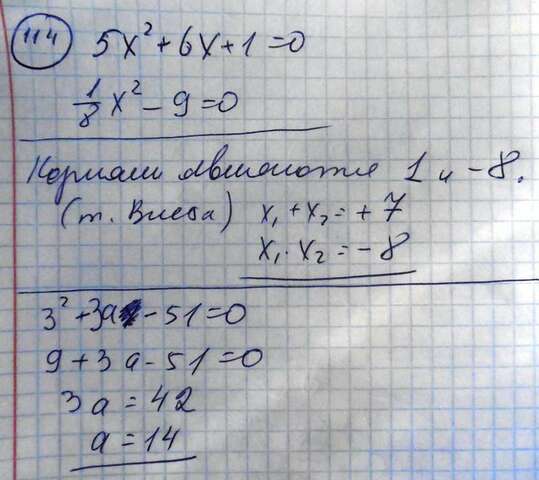 114 5x² + 6x + 1 = 0
1/8 x² - 9 = 0
Корнями являются 1 и -8.
(т. Виета) x₁ + x₂ = + 7
x₁ · x₂ = - 8
3² + 3a - 51 = 0
9 + 3a - 51 = 0
3a = 42
a = 14